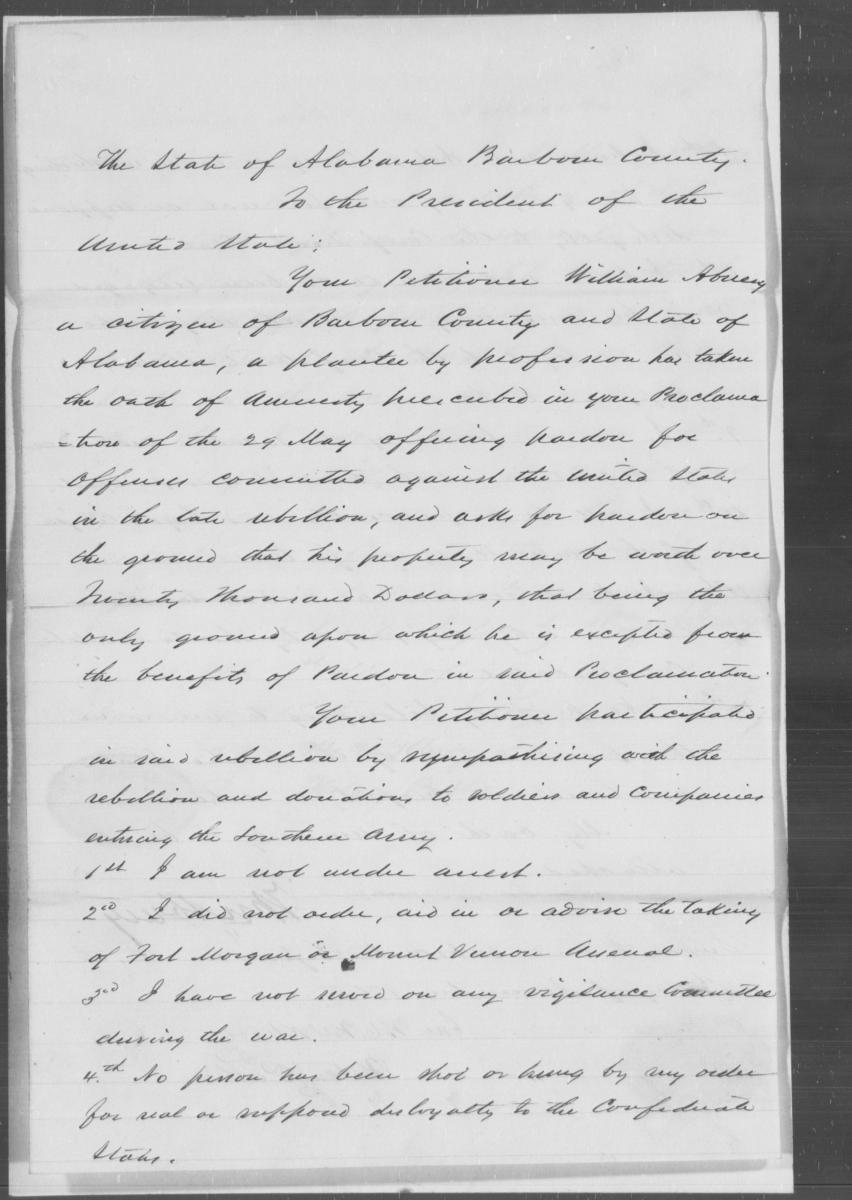 The State of Alabama Barbour County.
To the President of the
United State;
Your Petitioner William
a citizen of Barbour County and State of
Alabama, a planter by profession has taken
the oath of Amnesty prescribed in your Proclama
=tion of the 29 May offering pardon for
offenses committed against the United States
in the late rebellion, and asks for pardon on
the ground that his property may be worth over
Twenty Thousand Dollars, that being the
only ground upon which he is excepted from
the benefits of Pardon in said Proclamation.
Your Petitioner participated
in said rebellion by sympathising with the
rebellion and donations to soldiers and Companies
entering the Southern Army.
1st I am not under arrest.
2nd I did not order, aid in or advise the taking
of Fort Morgan or Mount Vernon Arsenal.
3rd I have not served on any vigilance Committee
during the war.
4.th No person has been shot or hung by my order
for real or supposed disloyalty to the Confederate
States.